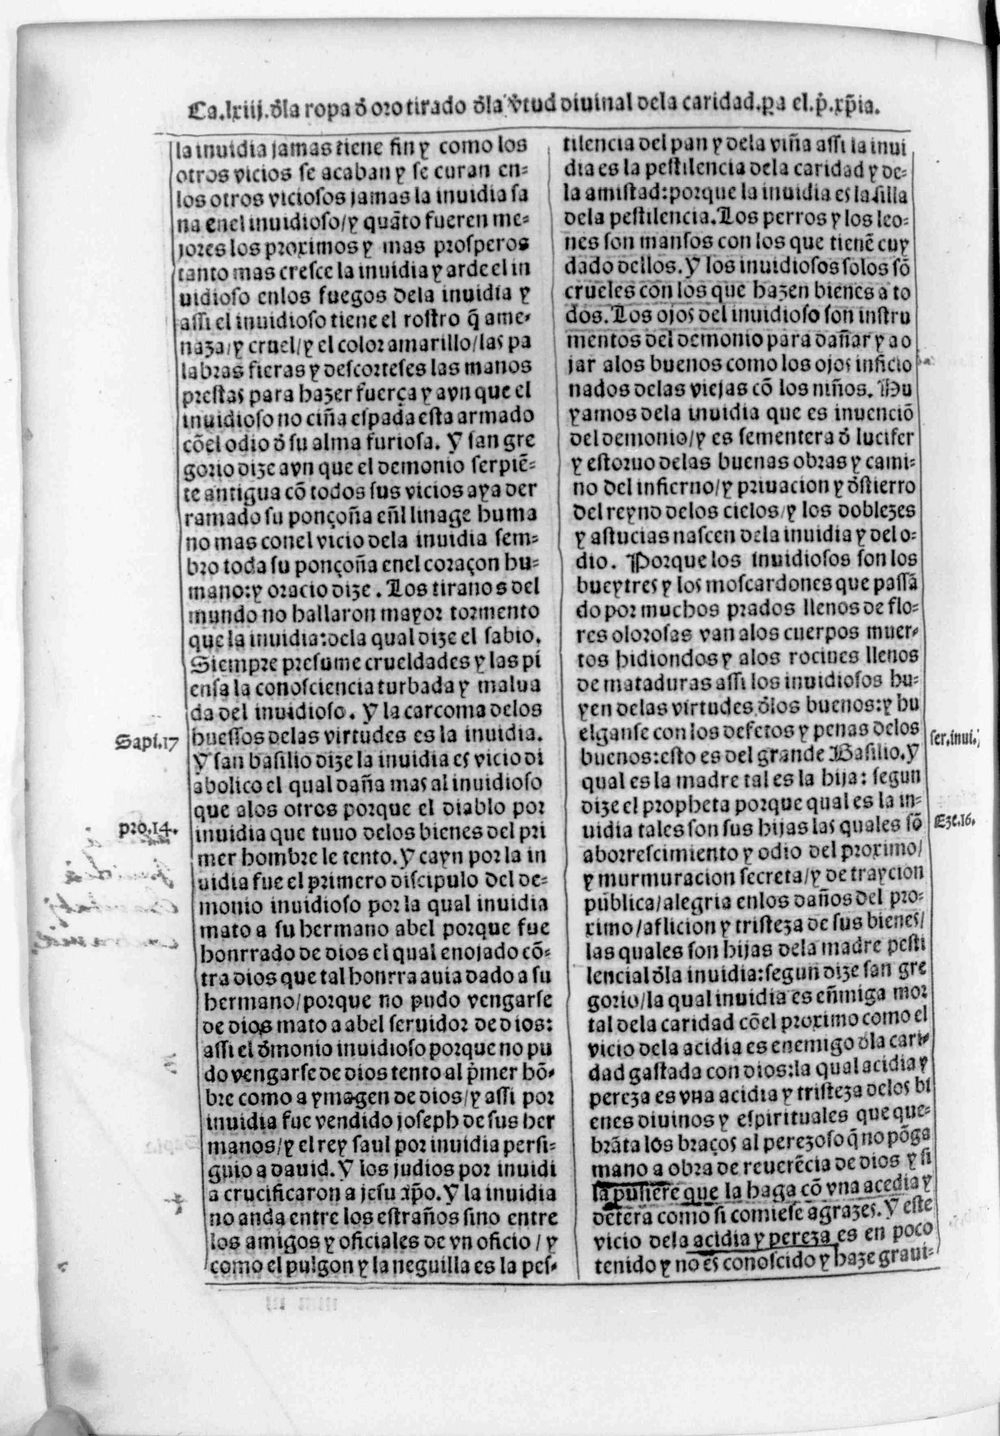 Ca.lxiij.d̃la ropa d̃ oro tirado d̃la v̓tud diuinal dela caridad.pa el.p̓.xp̃ia.
la inuidia jamas tiene fin y como los
otros vicios se acaban y se curan en-
los otros viciosos jamas la inuidia sa
na enel inuidioso/y quãto fueren me-
jores los proximos y mas prosperos
tanto mas cresce la inuidia y arde el in
uidioso enlos fuegos dela inuidia y
assi el inuidioso tiene el rostro q̃ ame-
naza/y cruel/y el color amarillo/las pa
labras fieras y descorteses las manos
prestas para hazer fuerça y avn que el
inuidioso no ciña espada esta armado
cõel odio d̃ su alma furiosa. Y san gre
gorio dize avn que el demonio serpiẽ-
te antigua cõ todos sus vicios aya der
ramado su ponçoña eñl linage huma
no mas conel vicio dela inuidia sem-
bro toda su ponçoña enel coraçon hu-
mano:y oracio dize. Los tiranos del
mundo no hallaron mayor tormento
que la inuidia:dela qual dize el sabio.
Siempre presume crueldades y las pi
ensa la consciencia turbada y malua
da del inuidioso. Y la carcoma delos
huessos delas virtudes es la inuidia.
Sapi.17
Y san basilio dize la inuidia es vicio di
abolico el qual daña mas al inuidioso
que alos otros porque el diablo por
pro.14.
inuidia que tuuo delos bienes del pri
mer hombre le tento. Y cayn por la in
uidia fue el primero discipulo del de-
monio inuidioso por la qual inuidia
mato a su hermano abel porque fue
honrrado de dios el qual enojado cõ-
tra dios que tal honrra auia dado a su
hermano/porque no pudo vengarse
de dios mato a abel seruidor de dios:
assi el d̃monio inuidioso porque no pu
do vengarse de dios tento al p̓mer hõ-
bre como a ymagen de dios/y assi por
inuidia fue vendido joseph de sus her
manos/y el rey saul por inuidia persi-
guio a dauid. Y los judios por inuidi
a crucificaron a jesu xp̃o. Y la inuidia
no anda entre los estraños sino entre
los amigos y oficiales de vn oficio/y
como el pulgon y la neguilla es la pes-
tilencia del pan y dela viña assi la inui
dia es la pestilencia dela caridad y de-
la amistad:porque la inuidia es la silla
dela pestilencia. Los perros y los leo-
nes son mansos con los que tienẽ cuy
dado dellos. Y los inuidiosos solos sõ
crueles con los que hazen bienes a to
dos. Los ojos del inuidioso son instru
mentos del demonio para dañar y ao
jar alos buenos como los ojos inficio
nados delas viejas cõ los niños. Hu
yamos dela inuidia que es inuenciõ
del demonio/y es sementera d̃ lucifer
y estoruo delas buenas obras y cami-
no del infierno/y priuacion y d̃stierro
del reyno delos cielos/y los doblezes
y astucias nascen dela inuidia y del o-
dio. Porque los inuidiosos son los
bueytres y los moscardones que passã
do por muchos prados llenos de flo-
res olorosas van alos cuerpos muer-
tos hidiondos y alos rocines llenos
de mataduras assi los inuidiosos hu-
yen delas virtudes d̃los buenos:y hu
elganse con los defetos y penas delos
buenos:esto es del grande Basilio. Y
ser.inui.
qual es la madre tal es la hija: segun
dize el propheta porque qual es la in-
uidia tales son sus hijas las quales sõ
Eze.16.
aborrescimiento y odio del proximo/
y murmuracion secreta/y de traycion
publica/alegria enlos daños del pro-
ximo/aflicion y tristeza de sus bienes/
las quales son hijas dela madre pesti
lencial d̃la inuidia:segun dize san gre
gorio/la qual inuidia es eñmiga mor
tal dela caridad cõel proximo como el
vicio dela acidia es enemigo d̃la cari-
dad gastada con dios:la qual acidia y
pereza es vna acidia y tristeza delos bi
enes diuinos y espirituales que que-
brãta los braços al perezoso q̃ no põga
mano a obra de reuerẽcia de dios y si
la pusiere que la haga cõ vna acedia y
detera como si comiese agrazes. Y este
vicio dela acidia y pereza es en poco
tenido y no es conoscido y haze graui-